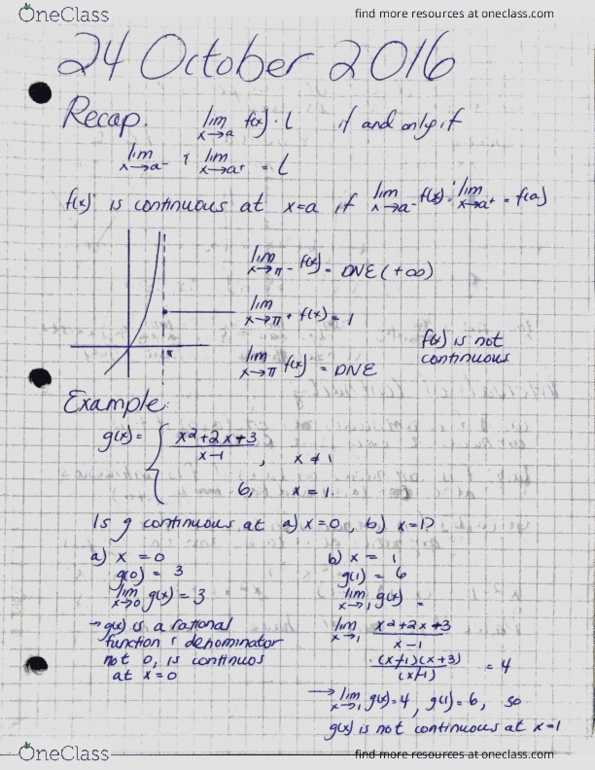 OneClass find more resources at oneclass.com
24 October 2016
Recap. lim x→a f(x) = L if and only if
lim x→a⁻ & lim x→a⁺ = L
f(x) is continuous at x=a if lim x→a⁻ f(x) = lim x→a⁺ = f(a)
lim x→π⁻ f(x) = DNE (+∞)
lim x→π⁺ f(x) = 1
f(x) is not
continuous
π
lim x→π f(x) = DNE
Example:
g(x) = { x²+2x+3 / x-1 , x≠1
6, x=1.
Is g continuous at a) x=0, b) x=1?
a) x = 0
g(0) = 3
lim x→0 g(x) = 3
→ g(x) is a rational
function & denominator
not 0, is continuos
at x=0
b) x = 1
g(1) = 6
lim x→1 g(x) =
lim x→1 x²+2x+3 / x-1
(x-1)(x+3) / (x-1) = 4
→ lim x→1 g(x)=4, g(1)=6, so
g(x) is not continuous at x=1
OneClass find more resources at oneclass.com